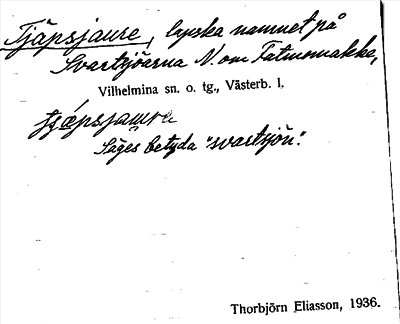 Tjäpsjaure, lapska namnet på
Svartsjöarna N. om Fatmomakke,
Vilhelmina sn. o. tg., Västerb. l.
tjápsjaurε
Säges betyda "svartsjön".
Thorbjörn Eliasson, 1936.